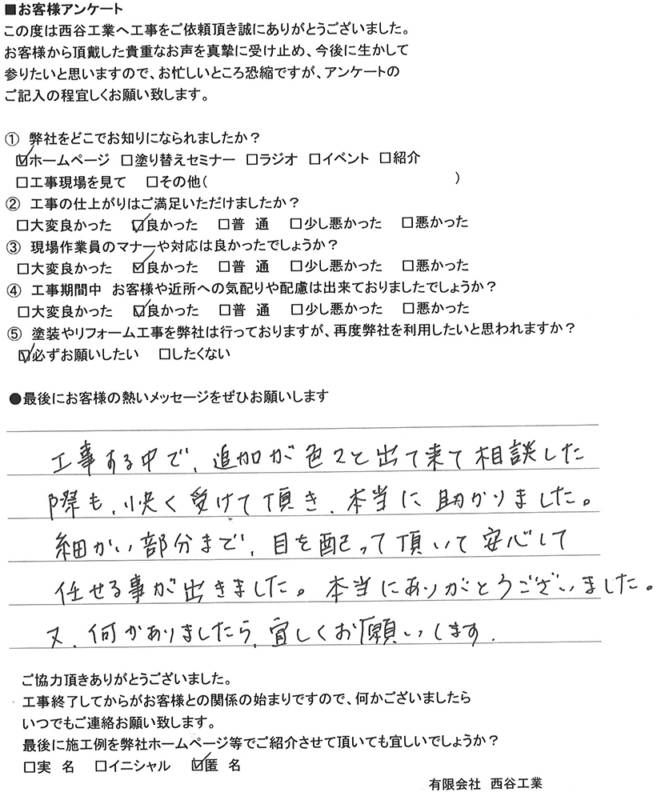 ■お客様アンケート
この度は西谷工業へ工事をご依頼頂き誠にありがとうございました。
お客様から頂戴した貴重なお声を真摯に受け止め、今後に生かして
参りたいと思いますので、お忙しいところ恐縮ですが、アンケートの
ご記入の程宜しくお願い致します。
① 弊社をどこでお知りになられましたか？
☑ホームページ □塗り替えセミナー □ラジオ □イベント □紹介
□工事現場を見て □その他( )
② 工事の仕上がりはご満足いただけましたか？
□大変良かった ☑良かった □普 通 □少し悪かった □悪かった
③ 現場作業員のマナーや対応は良かったでしょうか？
□大変良かった ☑良かった □普 通 □少し悪かった □悪かった
④ 工事期間中 お客様や近所への気配りや配慮は出来ておりましたでしょうか？
□大変良かった ☑良かった □普 通 □少し悪かった □悪かった
⑤ 塗装やリフォーム工事を弊社は行っておりますが、再度弊社を利用したいと思われますか？
☑必ずお願いしたい □したくない
●最後にお客様の熱いメッセージをぜひお願いします
工事する中で、追加が色々と出て来て相談した
際も、快く受けて頂き、本当に助かりました。
細かい部分まで、目を配って頂いて安心して
任せる事が出きました。本当にありがとうございました。
又、何かありましたら、宜しくお願いします.
ご協力頂きありがとうございました。
工事終了してからがお客様との関係の始まりですので、何かございましたら
いつでもご連絡お願い致します。
最後に施工例を弊社ホームページ等でご紹介させて頂いても宜しいでしょうか？
□実 名 □イニシャル ☑匿 名
有限会社 西谷工業